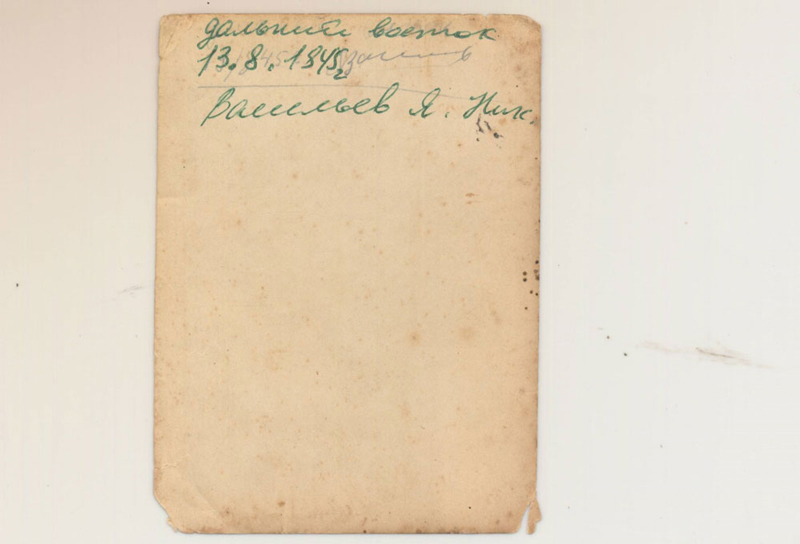 дальний восток
13.8.1945г
Васильев Я. Ник.